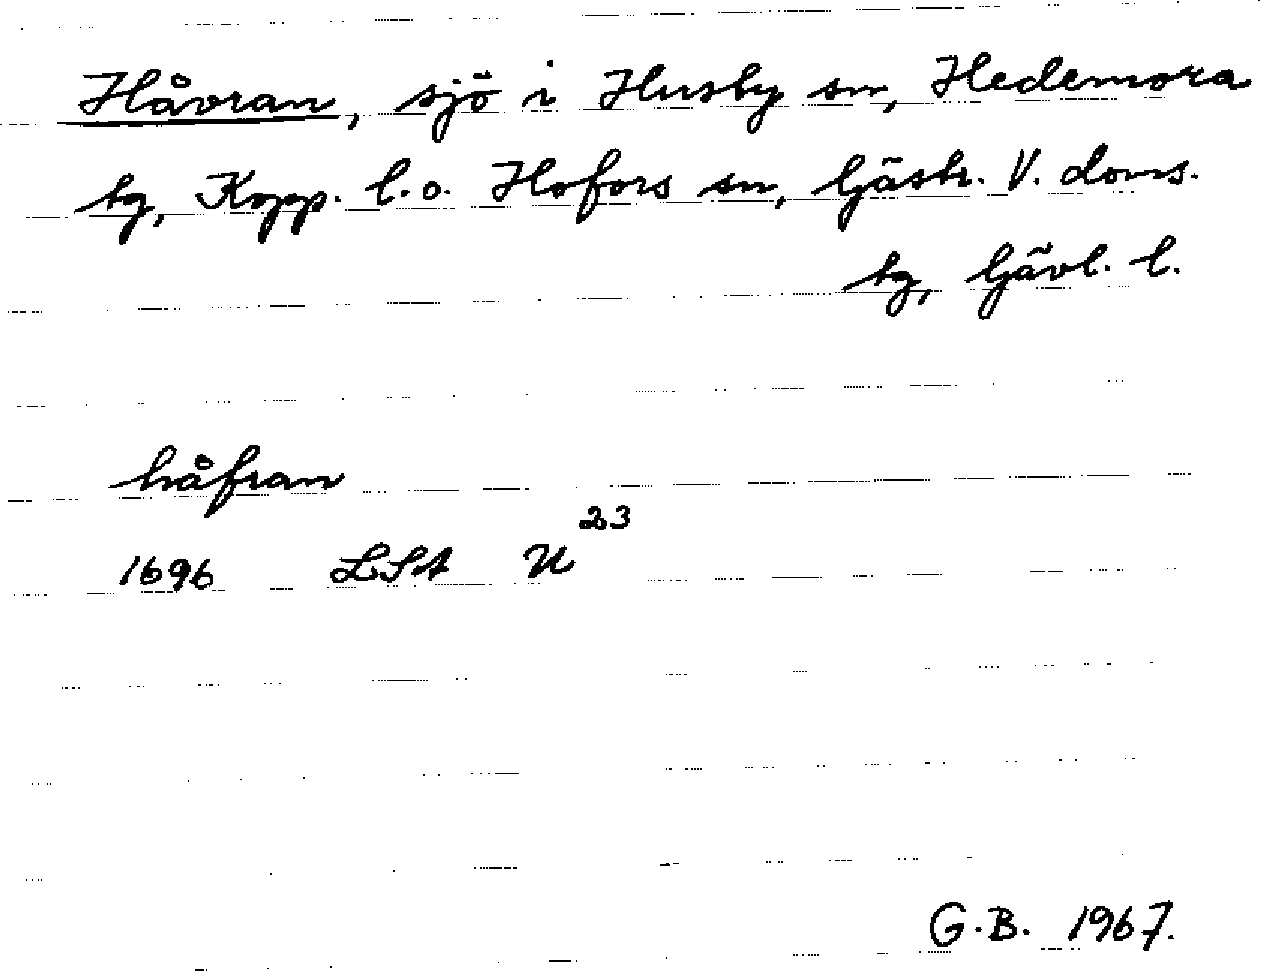 Håvran, sjö i Husby sn, Hedemora
tg, Kopp. l. o. Hofors sn, Gästr. V. doms.
tg, Gävl. l.
håfran
1696 LSA U²³
G.B. 1967.